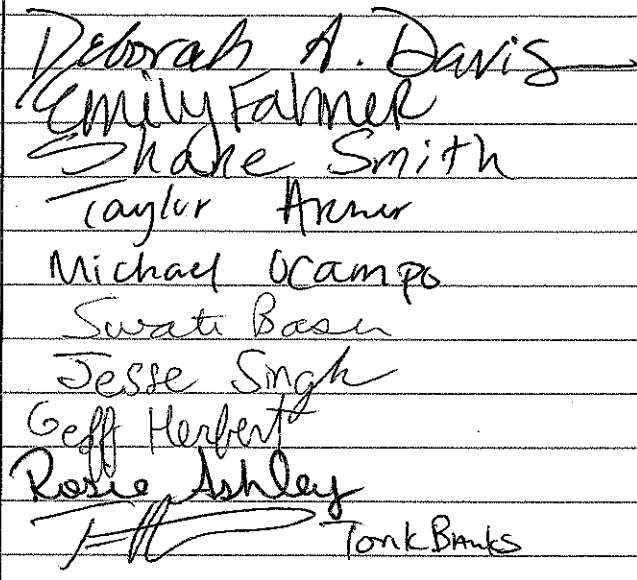 Deborah A. Davis
Emily Fahner
Shane Smith
Taylor
Michael Ocampo
Swati Basu
Jesse Singh
Geff Herbert
Rosie Ashley
Tonk Banks